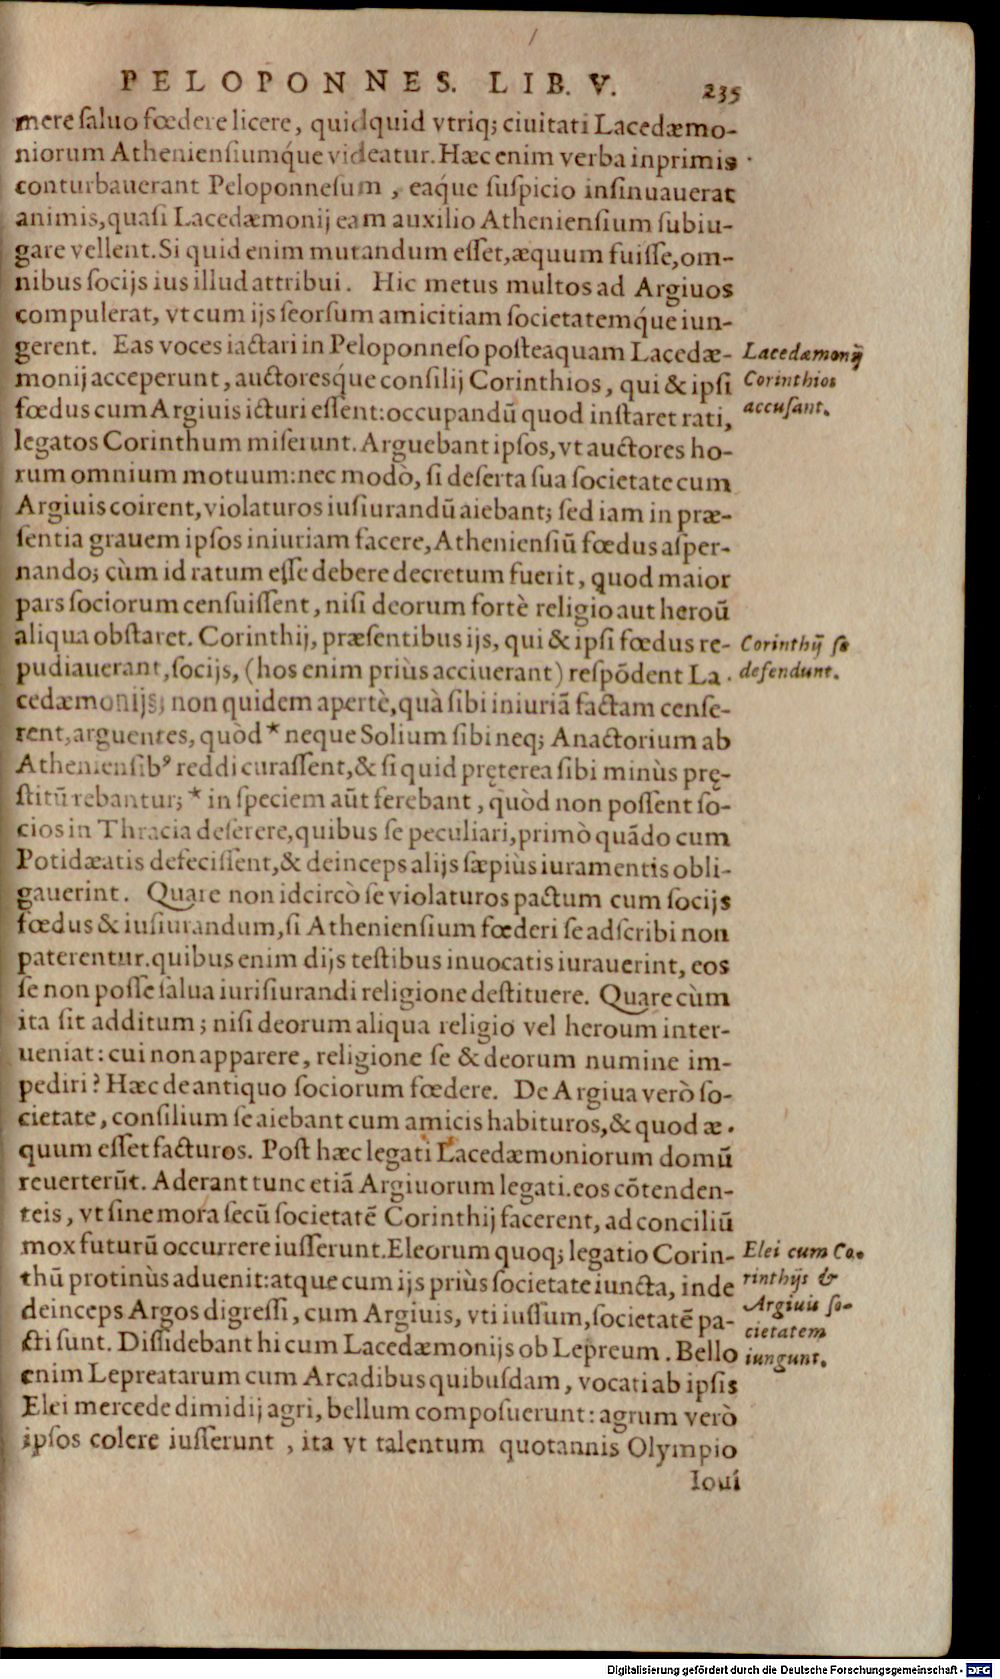 PELOPONNES. LIB. V. 235
mere ſaluo fœdere licere, quidquid vtriq; ciuitati Lacedæmo-
niorum Athenienſiumq́ue videatur. Hæc enim verba inprimis
conturbauerant Peloponneſum, eaq́ue ſuſpicio inſinuauerat
animis, quaſi Lacedæmonij eam auxilio Athenienſium ſubiu-
gare vellent. Si quid enim mutandum eſſet, æquum fuiſſe, om-
nibus ſocijs ius illud attribui. Hic metus multos ad Argiuos
compulerat, vt cum ijs ſeorſum amicitiam ſocietatemq́ue iun-
gerent. Eas voces iactari in Peloponneſo poſteaquam Lacedæ-
monij acceperunt, auctoresq́ue conſilij Corinthios, qui & ipſi
fœdus cum Argiuis icturi eſſent: occupandũ quod inſtaret rati,
legatos Corinthum miſerunt. Arguebant ipſos, vt auctores ho-
rum omnium motuum: nec modò, ſi deſerta ſua ſocietate cum
Argiuis coirent, violaturos iuſiurandũ aiebant; ſed iam in præ-
ſentia grauem ipſos iniuriam facere, Athenienſiũ fœdus aſper-
nando; cùm id ratum eſſe debere decretum fuerit, quod maior
pars ſociorum cenſuiſſent, niſi deorum fortè religio aut heroũ
aliqua obſtaret. Corinthij, præſentibus ijs, qui & ipſi fœdus re-
pudiauerant, ſocijs, (hos enim priùs acciuerant) reſpõdent La-
cedæmonijs; non quidem apertè, quà ſibi iniuriã factam cenſe-
rent, arguentes, quòd * neque Solium ſibi neq; Anactorium ab
Athenienſibꝰ reddi curaſſent, & ſi quid pręterea ſibi minùs prę-
ſtitũ rebantur; * in ſpeciem aũt ferebant, quòd non poſſent ſo-
cios in Thracia deſerere, quibus ſe peculiari, primò quãdo cum
Potidæatis defeciſſent, & deinceps alijs ſæpiùs iuramentis obli-
gauerint. Quare non idcircò ſe violaturos pactum cum ſocijs
fœdus & iuſiurandum, ſi Athenienſium fœderi ſe adſcribi non
paterentur. quibus enim dijs teſtibus inuocatis iurauerint, eos
ſe non poſſe ſalua iuriſiurandi religione deſtituere. Quare cùm
ita ſit additum; niſi deorum aliqua religio vel heroum inter-
ueniat: cui non apparere, religione ſe & deorum numine im-
pediri? Hæc de antiquo ſociorum fœdere. De Argiua verò ſo-
cietate, conſilium ſe aiebant cum amicis habituros, & quod æ-
quum eſſet facturos. Poſt hæc legati Lacedæmoniorum domũ
reuerterũt. Aderant tunc etiã Argiuorum legati. eos cõtenden-
teis, vt ſine mora ſecũ ſocietatẽ Corinthij facerent, ad conciliũ
mox futurũ occurrere iuſſerunt. Eleorum quoq; legatio Corin-
thũ protinùs aduenit: atque cum ijs priùs ſocietate iuncta, inde
deinceps Argos digreſſi, cum Argiuis, vti iuſſum, ſocietatẽ pa-
cti ſunt. Diſſidebant hi cum Lacedæmonijs ob Lepreum. Bello
enim Lepreatarum cum Arcadibus quibuſdam, vocati ab ipſis
Elei mercede dimidij agri, bellum compoſuerunt: agrum verò
ipſos colere iuſſerunt, ita vt talentum quotannis Olympio
Ioui
Lacedæmonij
Corinthios
accuſant.
Corinthij ſe
defendunt.
Elei cum Co-
rinthijs &
Argiuis ſo-
cietatem
iungunt.
Digitalisierung gefördert durch die Deutsche Forschungsgemeinschaft - DFG